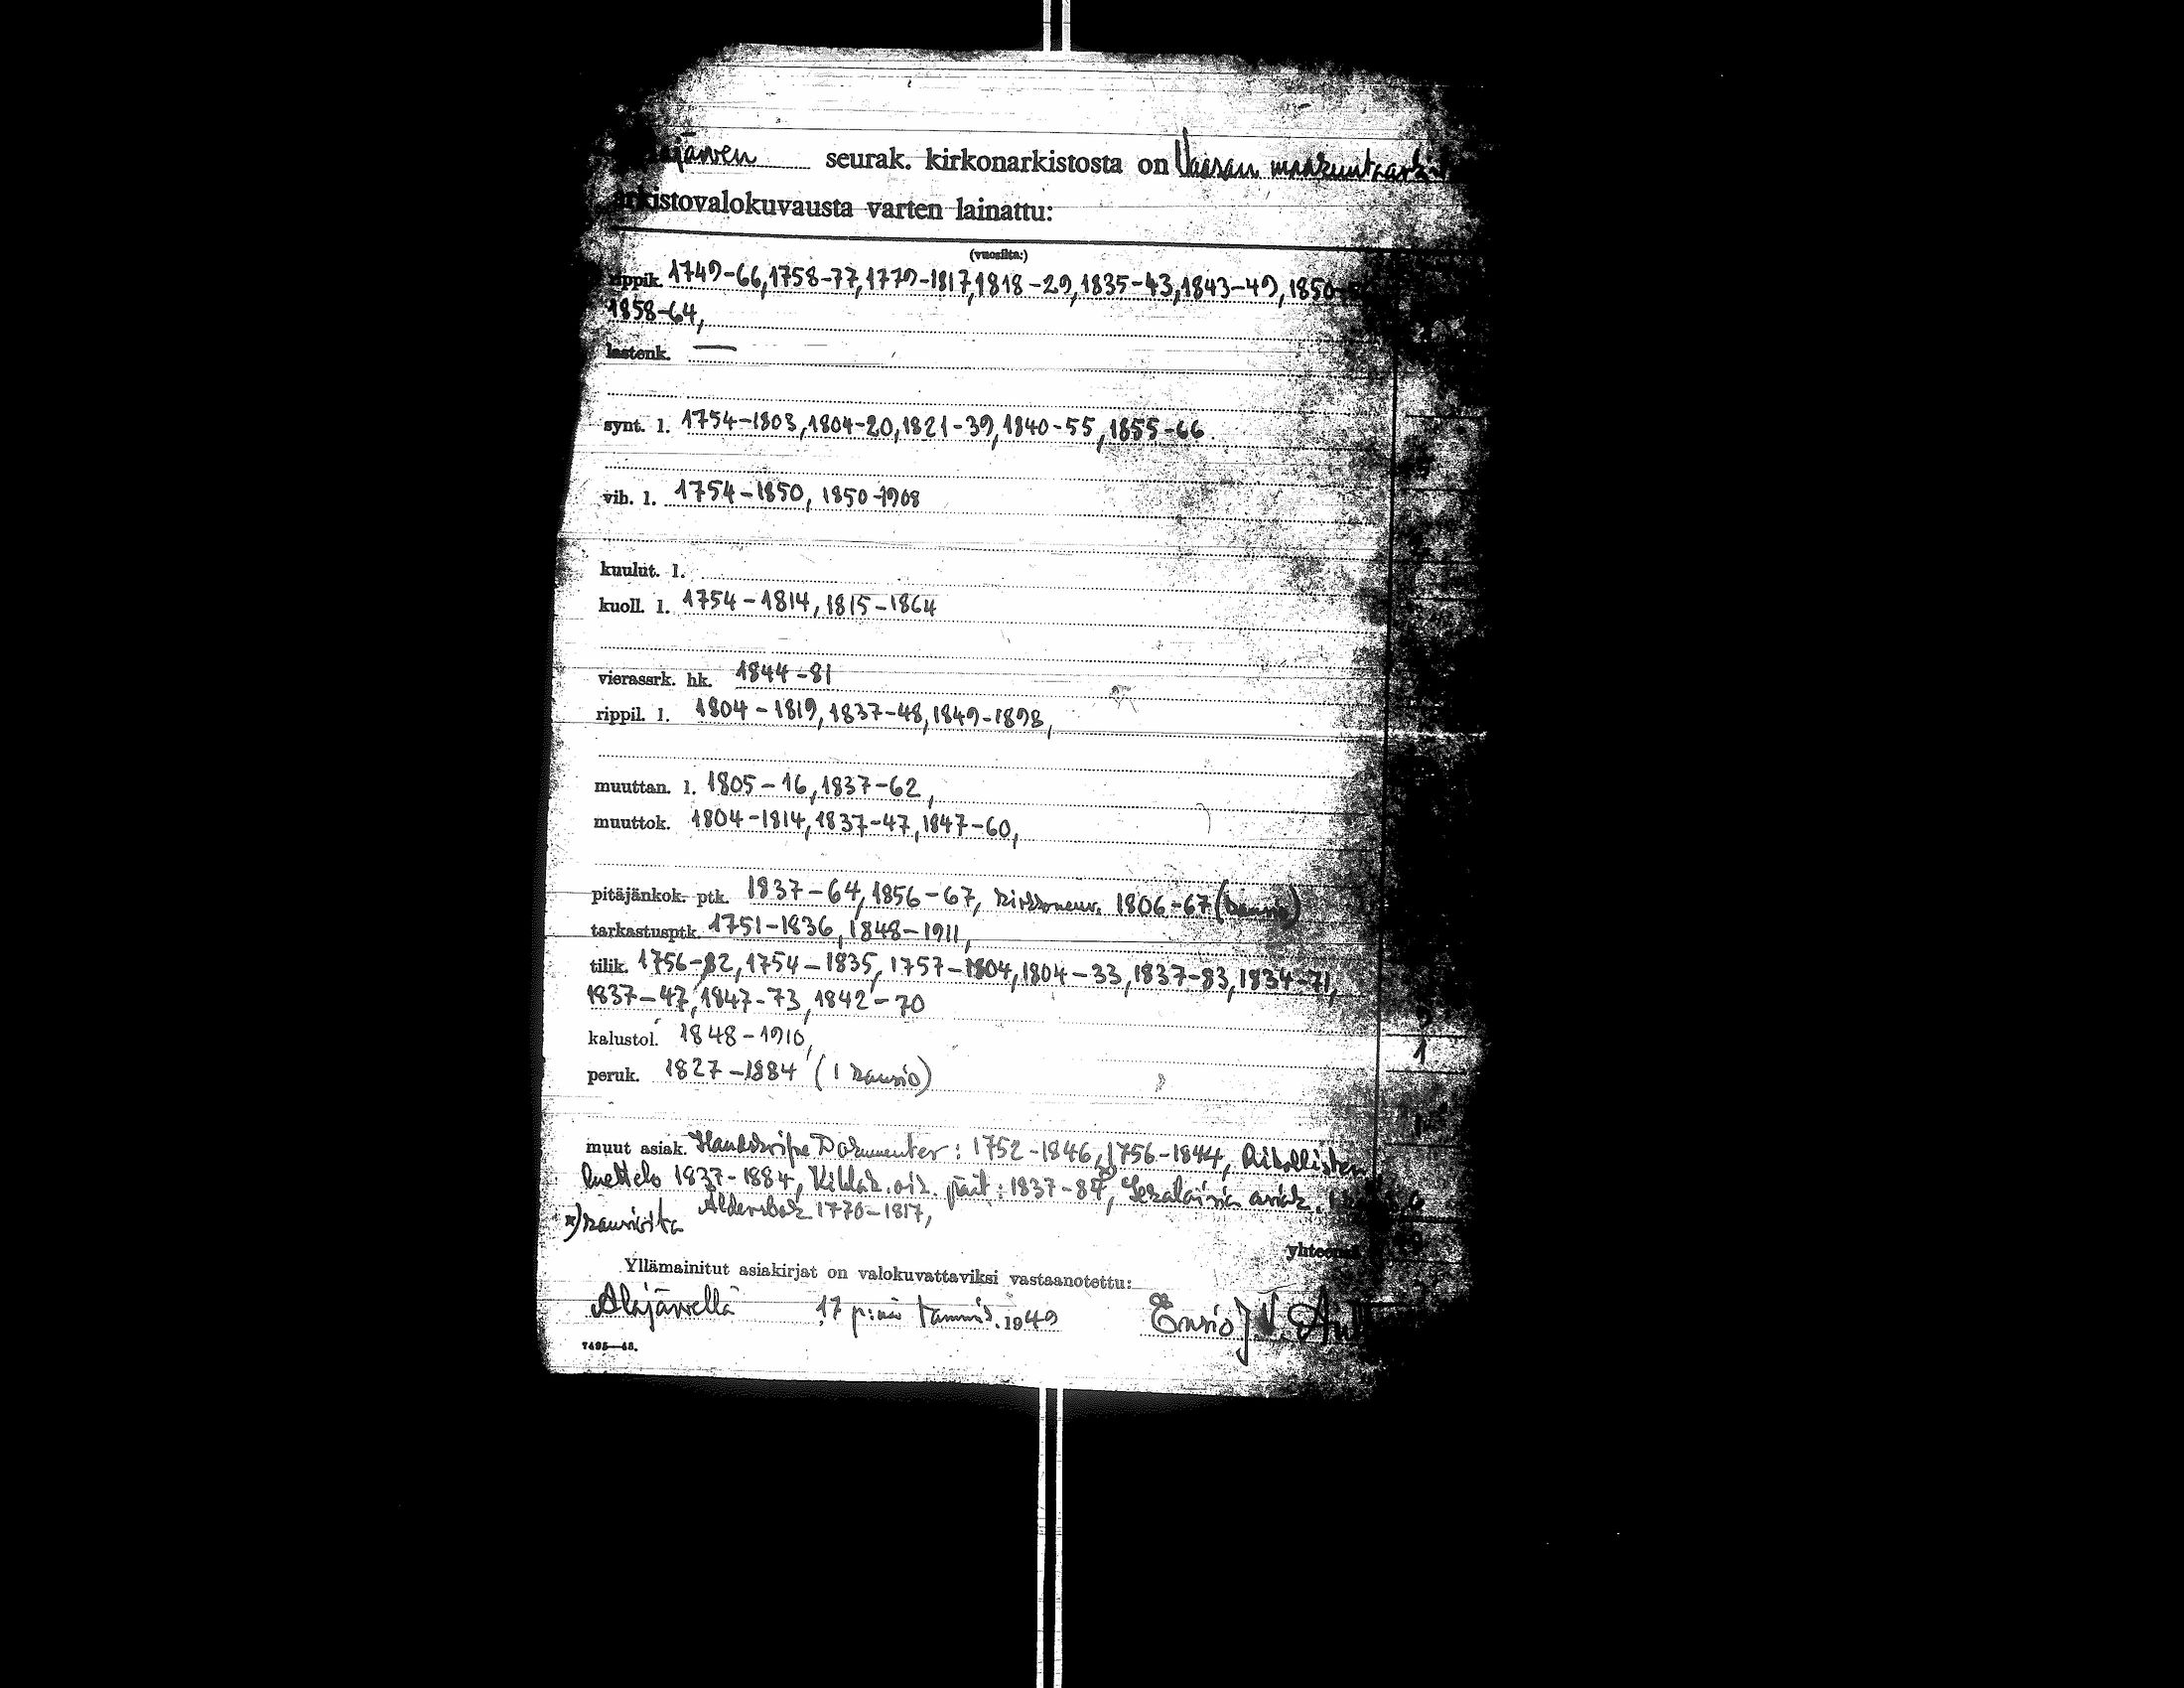 ajärven seurak. kirkonarkistosta on Vaasan maakuntaarki
arkistovalokuvausta varten lainattu:
(vuosilta:)
rippik. 1749-66, 1758-77, 1779-1817, 1818-29, 1835-43, 1843-49, 1850-
1858-64,
lastenk. —
synt. l. 1754-1803, 1804-20, 1821-39, 1840-55, 1855-66.
vih. l. 1754-1850, 1850-1908
kuulut. l.
kuoll. l. 1754-1814, 1815-1864
vierassrk. hk. 1844-81
rippil. l. 1804-1819, 1837-48, 1849-1898,
muuttan. l. 1805-16, 1837-62,
muuttok. 1804-1814, 1837-47, 1847-60,
pitäjänkok. ptk. 1837-64, 1856-67, kirkkoneuv. 1806-67 (kansio)
tarkastusptk. 1751-1836, 1848-1911,
tilik. 1756-82, 1754-1835, 1757-1804, 1804-33, 1837-83, 1834-71,
1837-47, 1847-73, 1842-70
kalustol. 1848-1910,
peruk. 1827-1884 (1 kansio)
muut asiak. Dokumenter: 1752-1846, 1756-1844, Rikollisten
luettelo 1837-1884, Kihlak. oik. päät: 1837-84, Sekalaisia asiak.
*) kansioita Åldersbok 1770-1817,
yhteensä
Yllämainitut asiakirjat on valokuvattaviksi vastaanotettu:
Alajärvellä 17 p:nä tammik. 1949 Ensio J V.
7495—48.